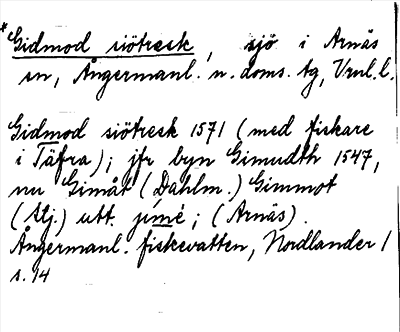 *Gidmod siötresk, sjö i Arnäs
sn, Ångermanl. n. doms. tg, Vnl. l.
Gidmod siötresk 1571 (med fiskare
i Täfra); jfr byn Gimudth 1547,
nu Gimåt (Dahlm.) Gimmot
(Alj.) utt. jímè; (Arnäs).
Ångermanl. fiskevatten, Nordlander 1
s. 14